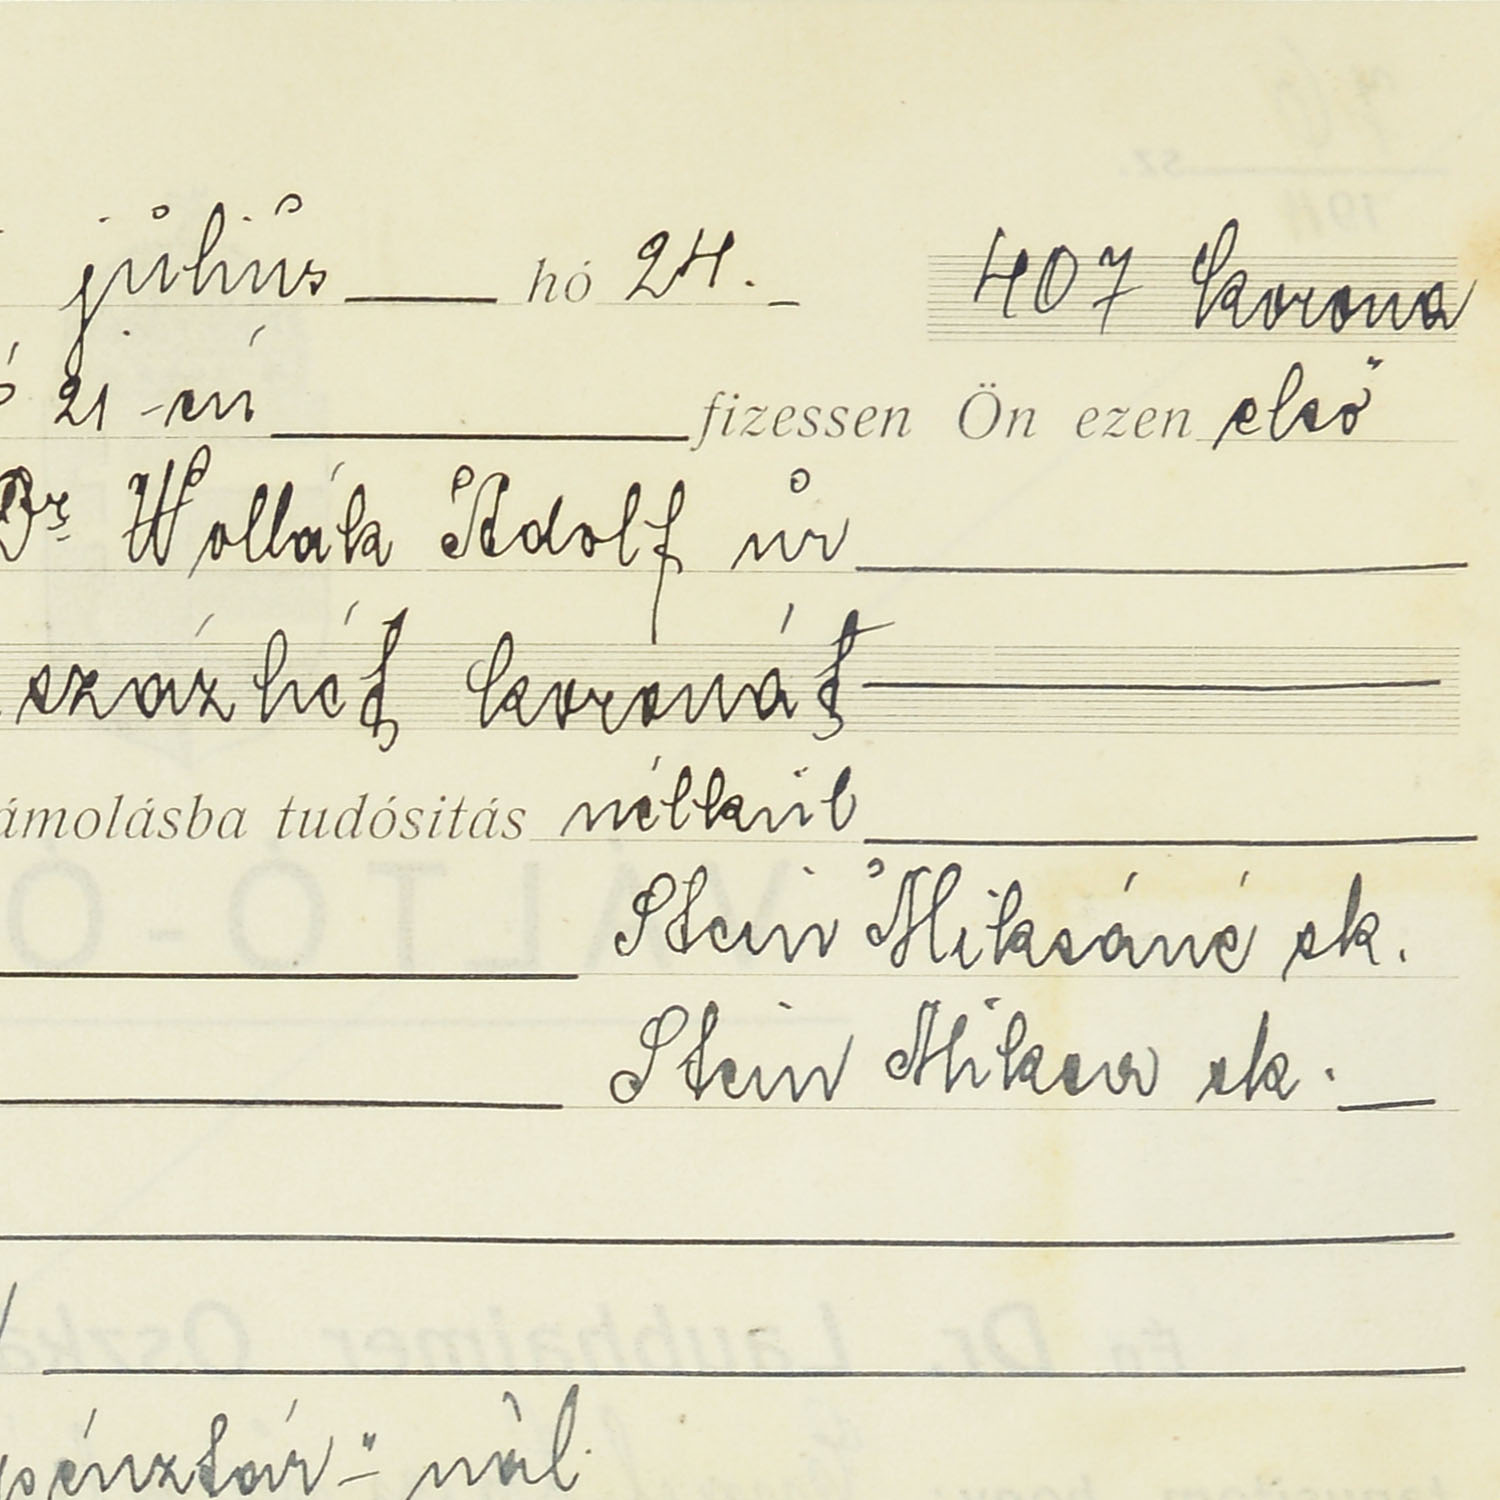 július hó 24. 407 korona
21-én fizessen Ön ezen első
Dr Wollák Adolf úr
százhét koronát
ámolásba tudósitás nélkül
Stein Miksáné sk.
Stein Miksa sk.
pénztár"-nál